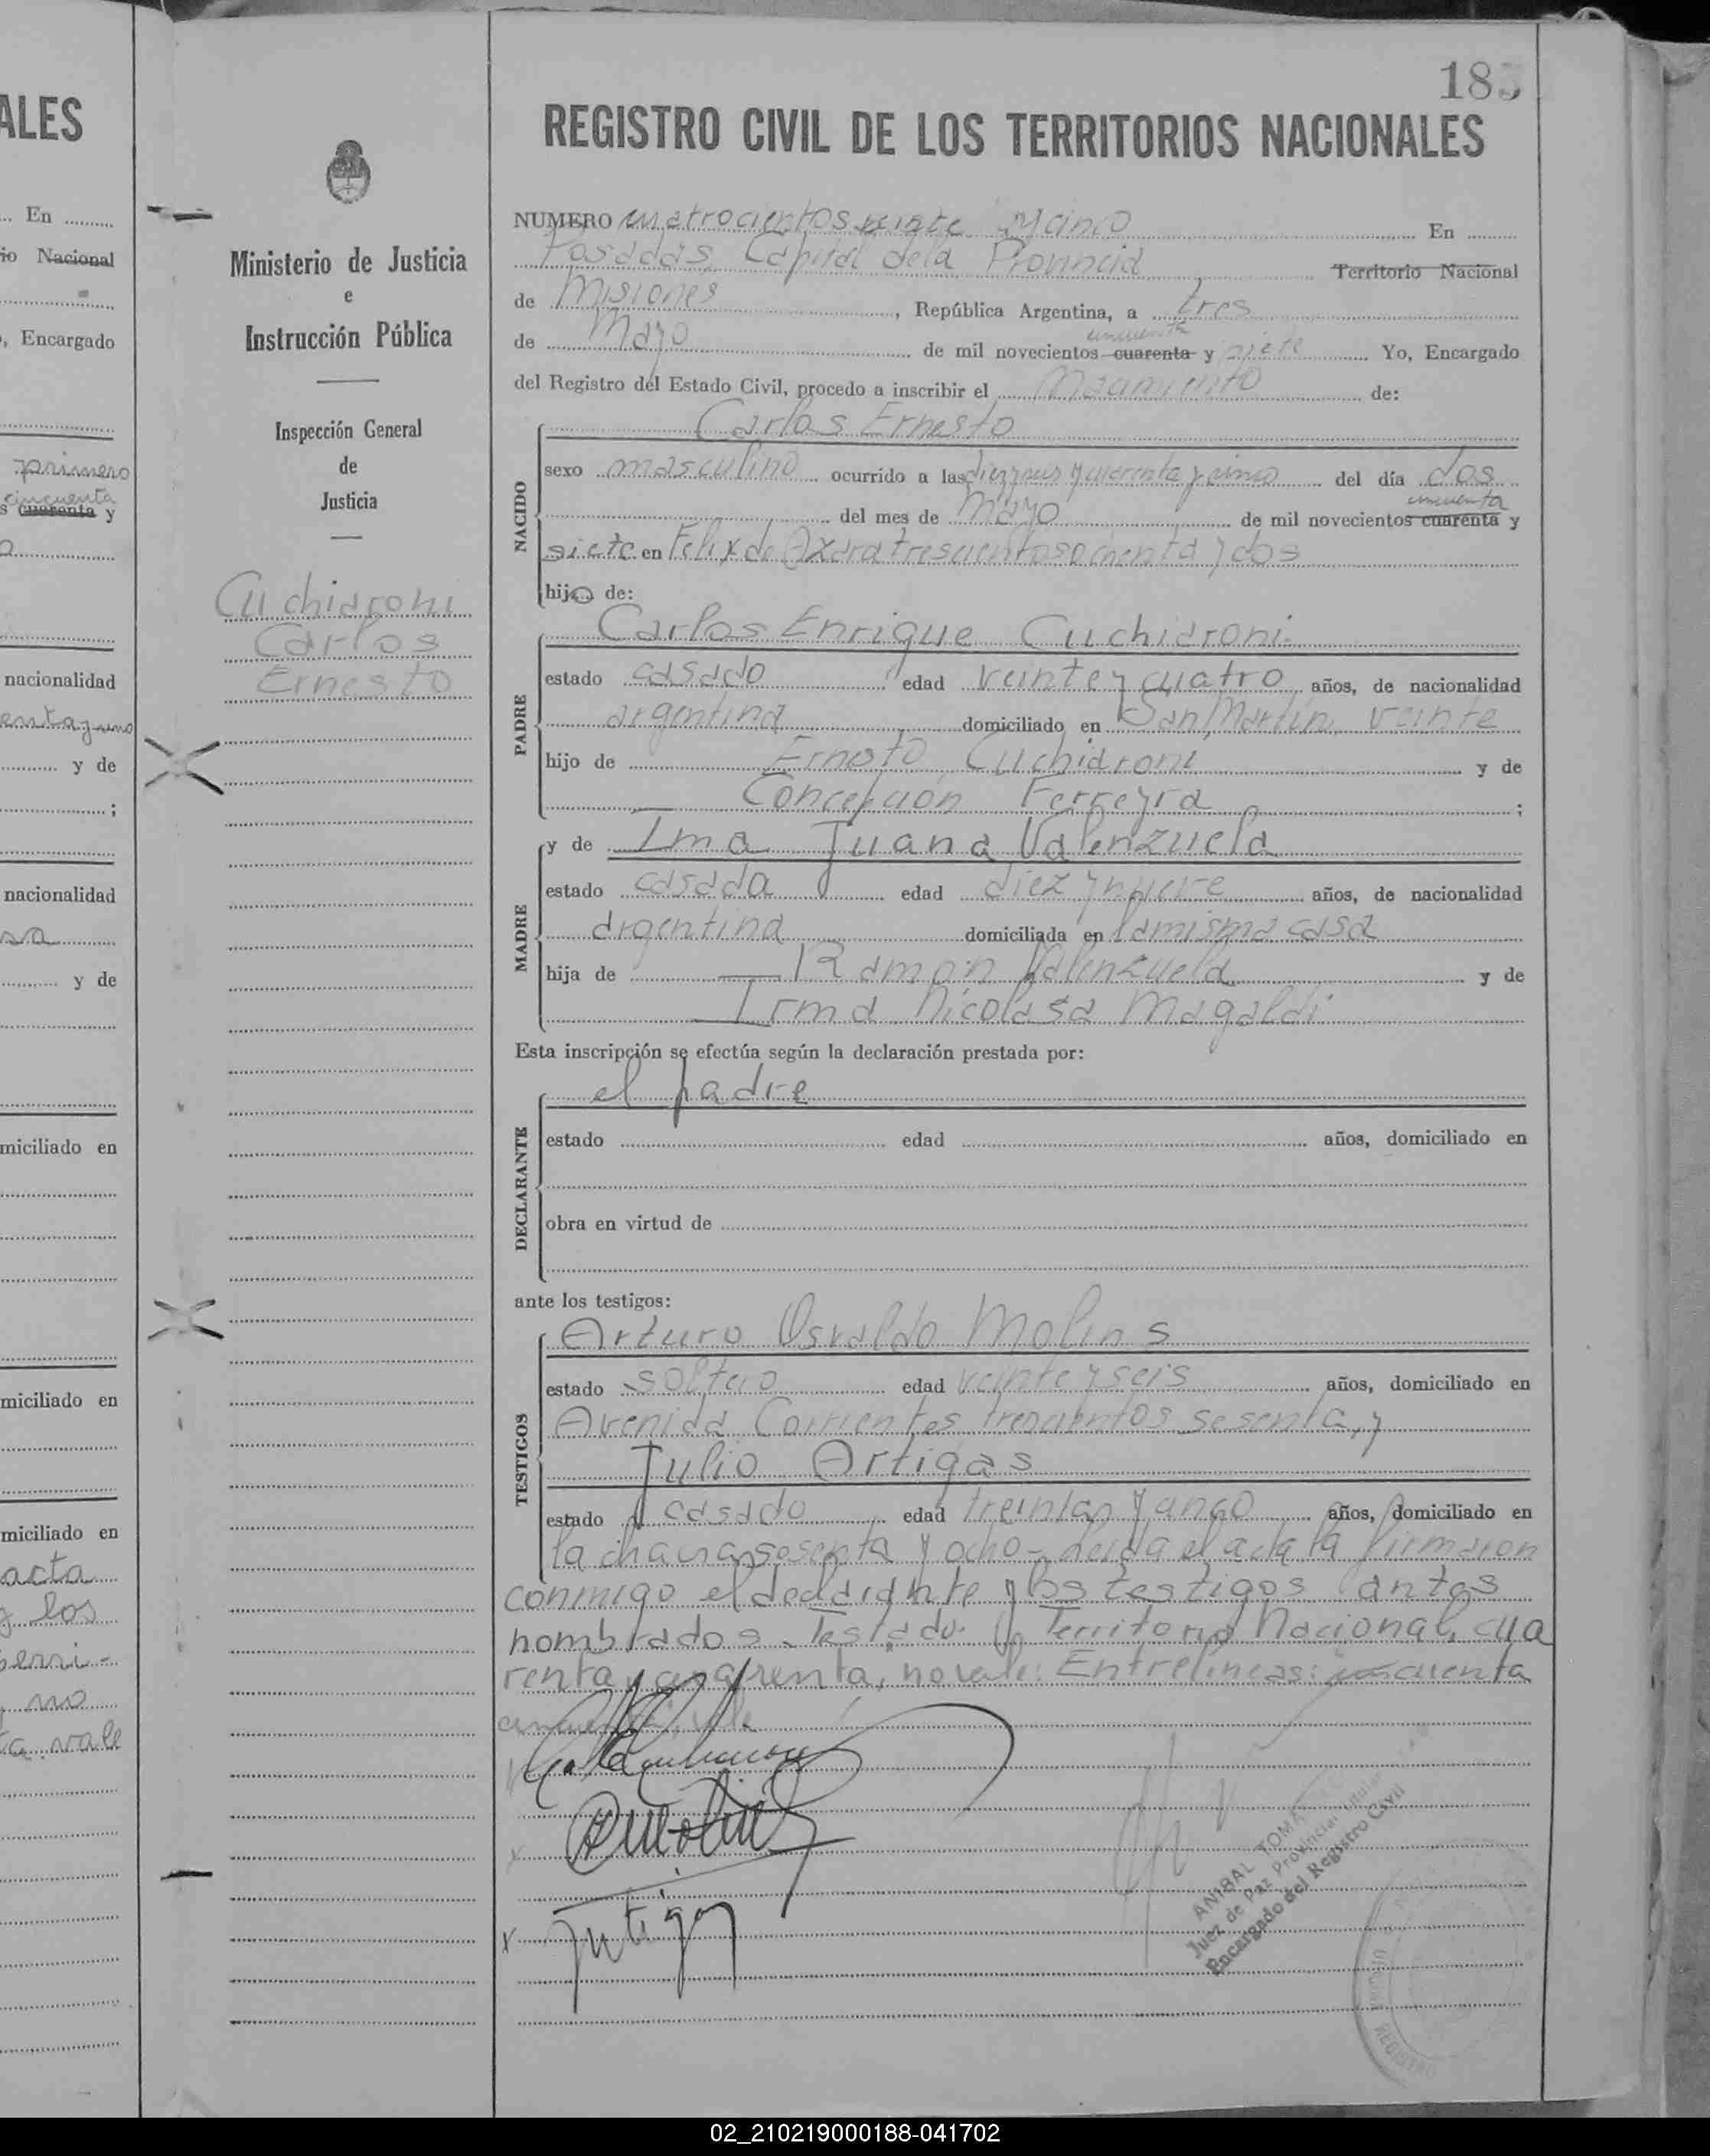 ALES
... En .........
io Nacional
, Encargado
primero
cincuenta
s cuarenta y
nacionalidad
y de
;
nacionalidad
y de
miciliado en
miciliado en
miciliado en
acta
y los
no
vale
Ministerio de Justicia
e
Instrucción Pública
Inspección General
de
Justicia
Cuchiaroni
Carlos
Ernesto
185
REGISTRO CIVIL DE LOS TERRITORIOS NACIONALES
NUMERO cuatrocientos veinte y cinco En
Posadas, Capital de la Provincia Territorio Nacional
de Misiones, República Argentina, a tres
cincuenta
de Mayo de mil novecientos cuarenta y siete Yo, Encargado
del Registro del Estado Civil, procedo a inscribir el nacimiento de:
Carlos Ernesto
NACIDO
sexo masculino ocurrido a las diez y seis y cuarenta y cinco del día dos
cincuenta
del mes de Mayo de mil novecientos cuarenta y
siete en Felix de Azara trescientos ochenta y dos
hijo de:
Carlos Enrique Cuchiaroni
PADRE
estado casado edad veinte y cuatro años, de nacionalidad
argentina domiciliado en San Martín veinte
hijo de Ernesto Cuchiaroni y de
Concepción Ferreyra ;
y de Ima Juana Valenzuela
MADRE
estado casada edad diez y nueve años, de nacionalidad
argentina domiciliada en la misma casa
hija de Ramón Valenzuela y de
Irma Nicolasa Magaldi
Esta inscripción se efectúa según la declaración prestada por:
el padre
DECLARANTE
estado edad años, domiciliado en
obra en virtud de
ante los testigos:
Arturo Osvaldo Molins
TESTIGOS
estado soltero edad veinte y seis años, domiciliado en
Avenida Corrientes trescientos sesenta, y
Julio Artigas
estado casado edad treinta y cinco años, domiciliado en
la chacra sesenta y ocho - Leida el acta la firmaron
conmigo el declarante y los testigos antes
nombrados - Testado: Territorio Nacional, cua
renta, cuarenta, no vale: Entrelíneas: cincuenta
cincuenta, vale
Artigas
ANIBAL TOMA
Juez de Paz Provincial Titular
Encargado del Registro Civil
REGISTRO
02_210219000188-041702